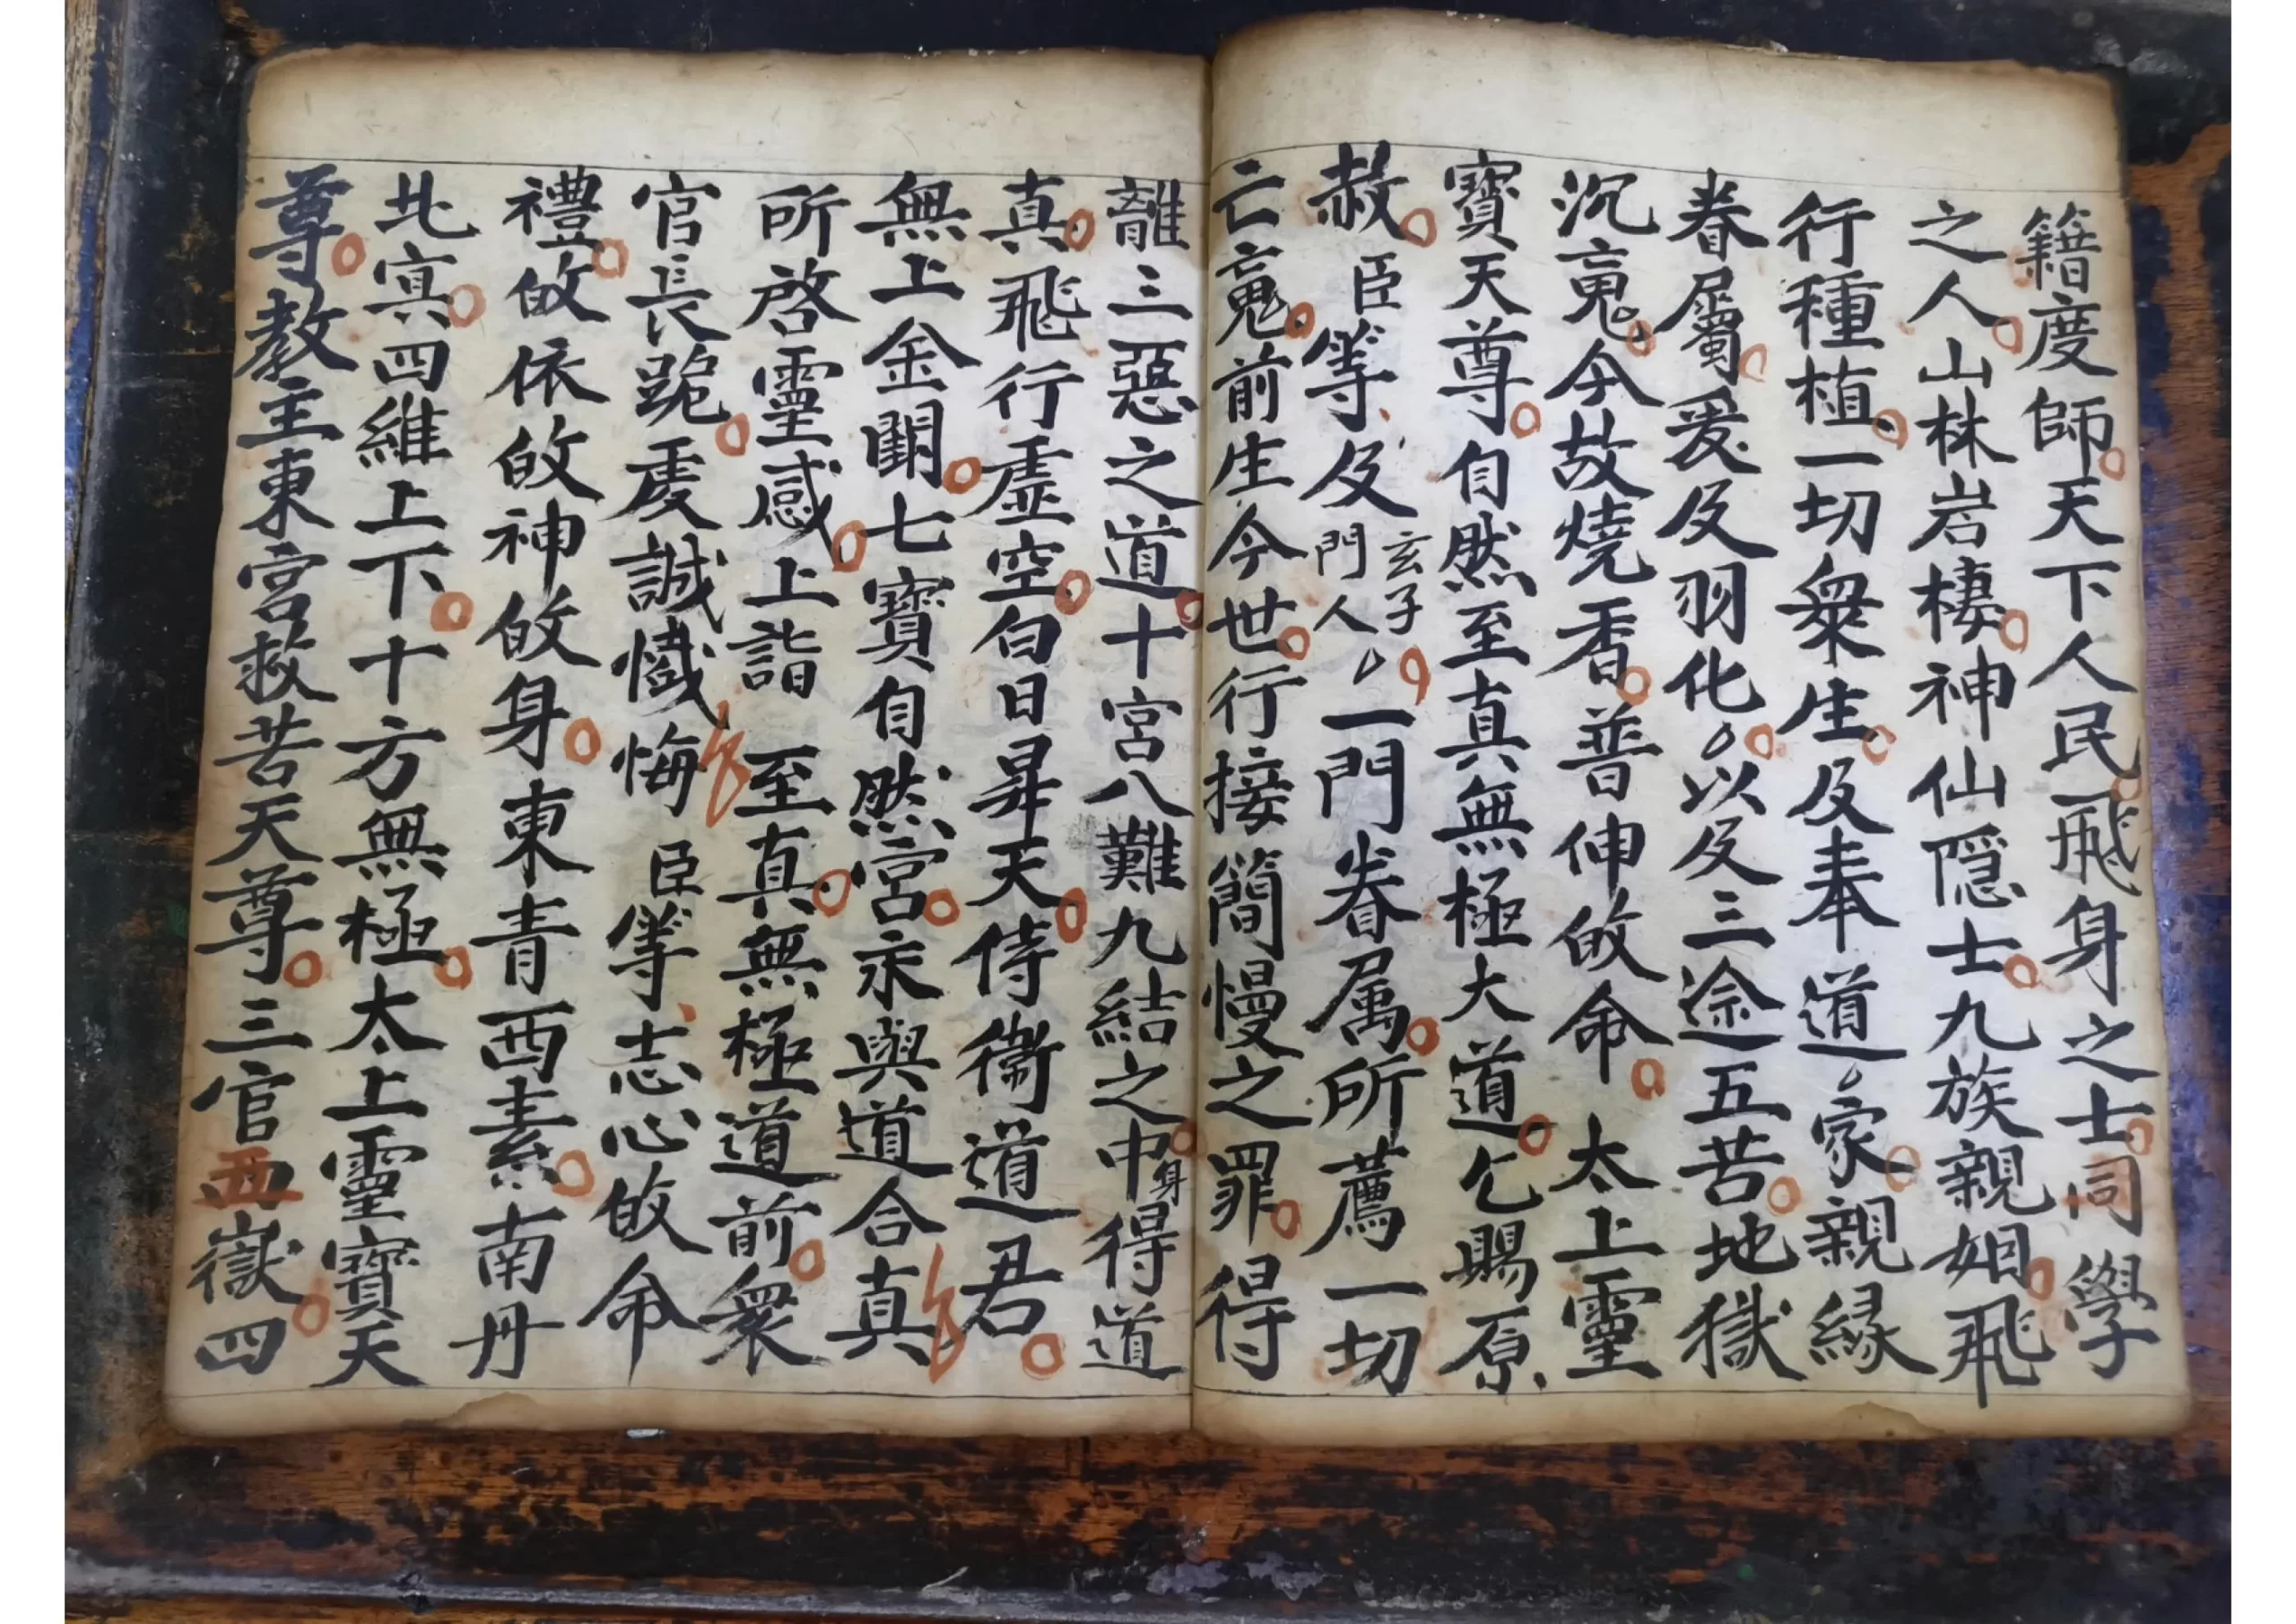 籍度師天下人民飛身之士同學
之人山林岩棲神仙隱士九族親姻飛
行種植一切衆生及奉道家親緣
眷屬爰及羽化以及三途五苦地獄
沉䰟今故燒香普伸皈命太上靈
寶天尊自然至真無極大道乞賜原
赦臣等及玄子門人一門眷属所薦一切
亡䰟前生今世行接簡慢之罪得
離三惡之道十宮八難九結之中身得道
真飛行虛空白日昇天侍衞道君
無上金闕七寶自然宮永與道合真
所啓靈感上詣至真無極道前衆
官長跪虔誠懺悔臣等志心皈命
禮皈依皈神皈身東青西素南丹
北寘四維上下十方無極太上靈寶天
尊教主東宮救苦天尊三官西嶽四